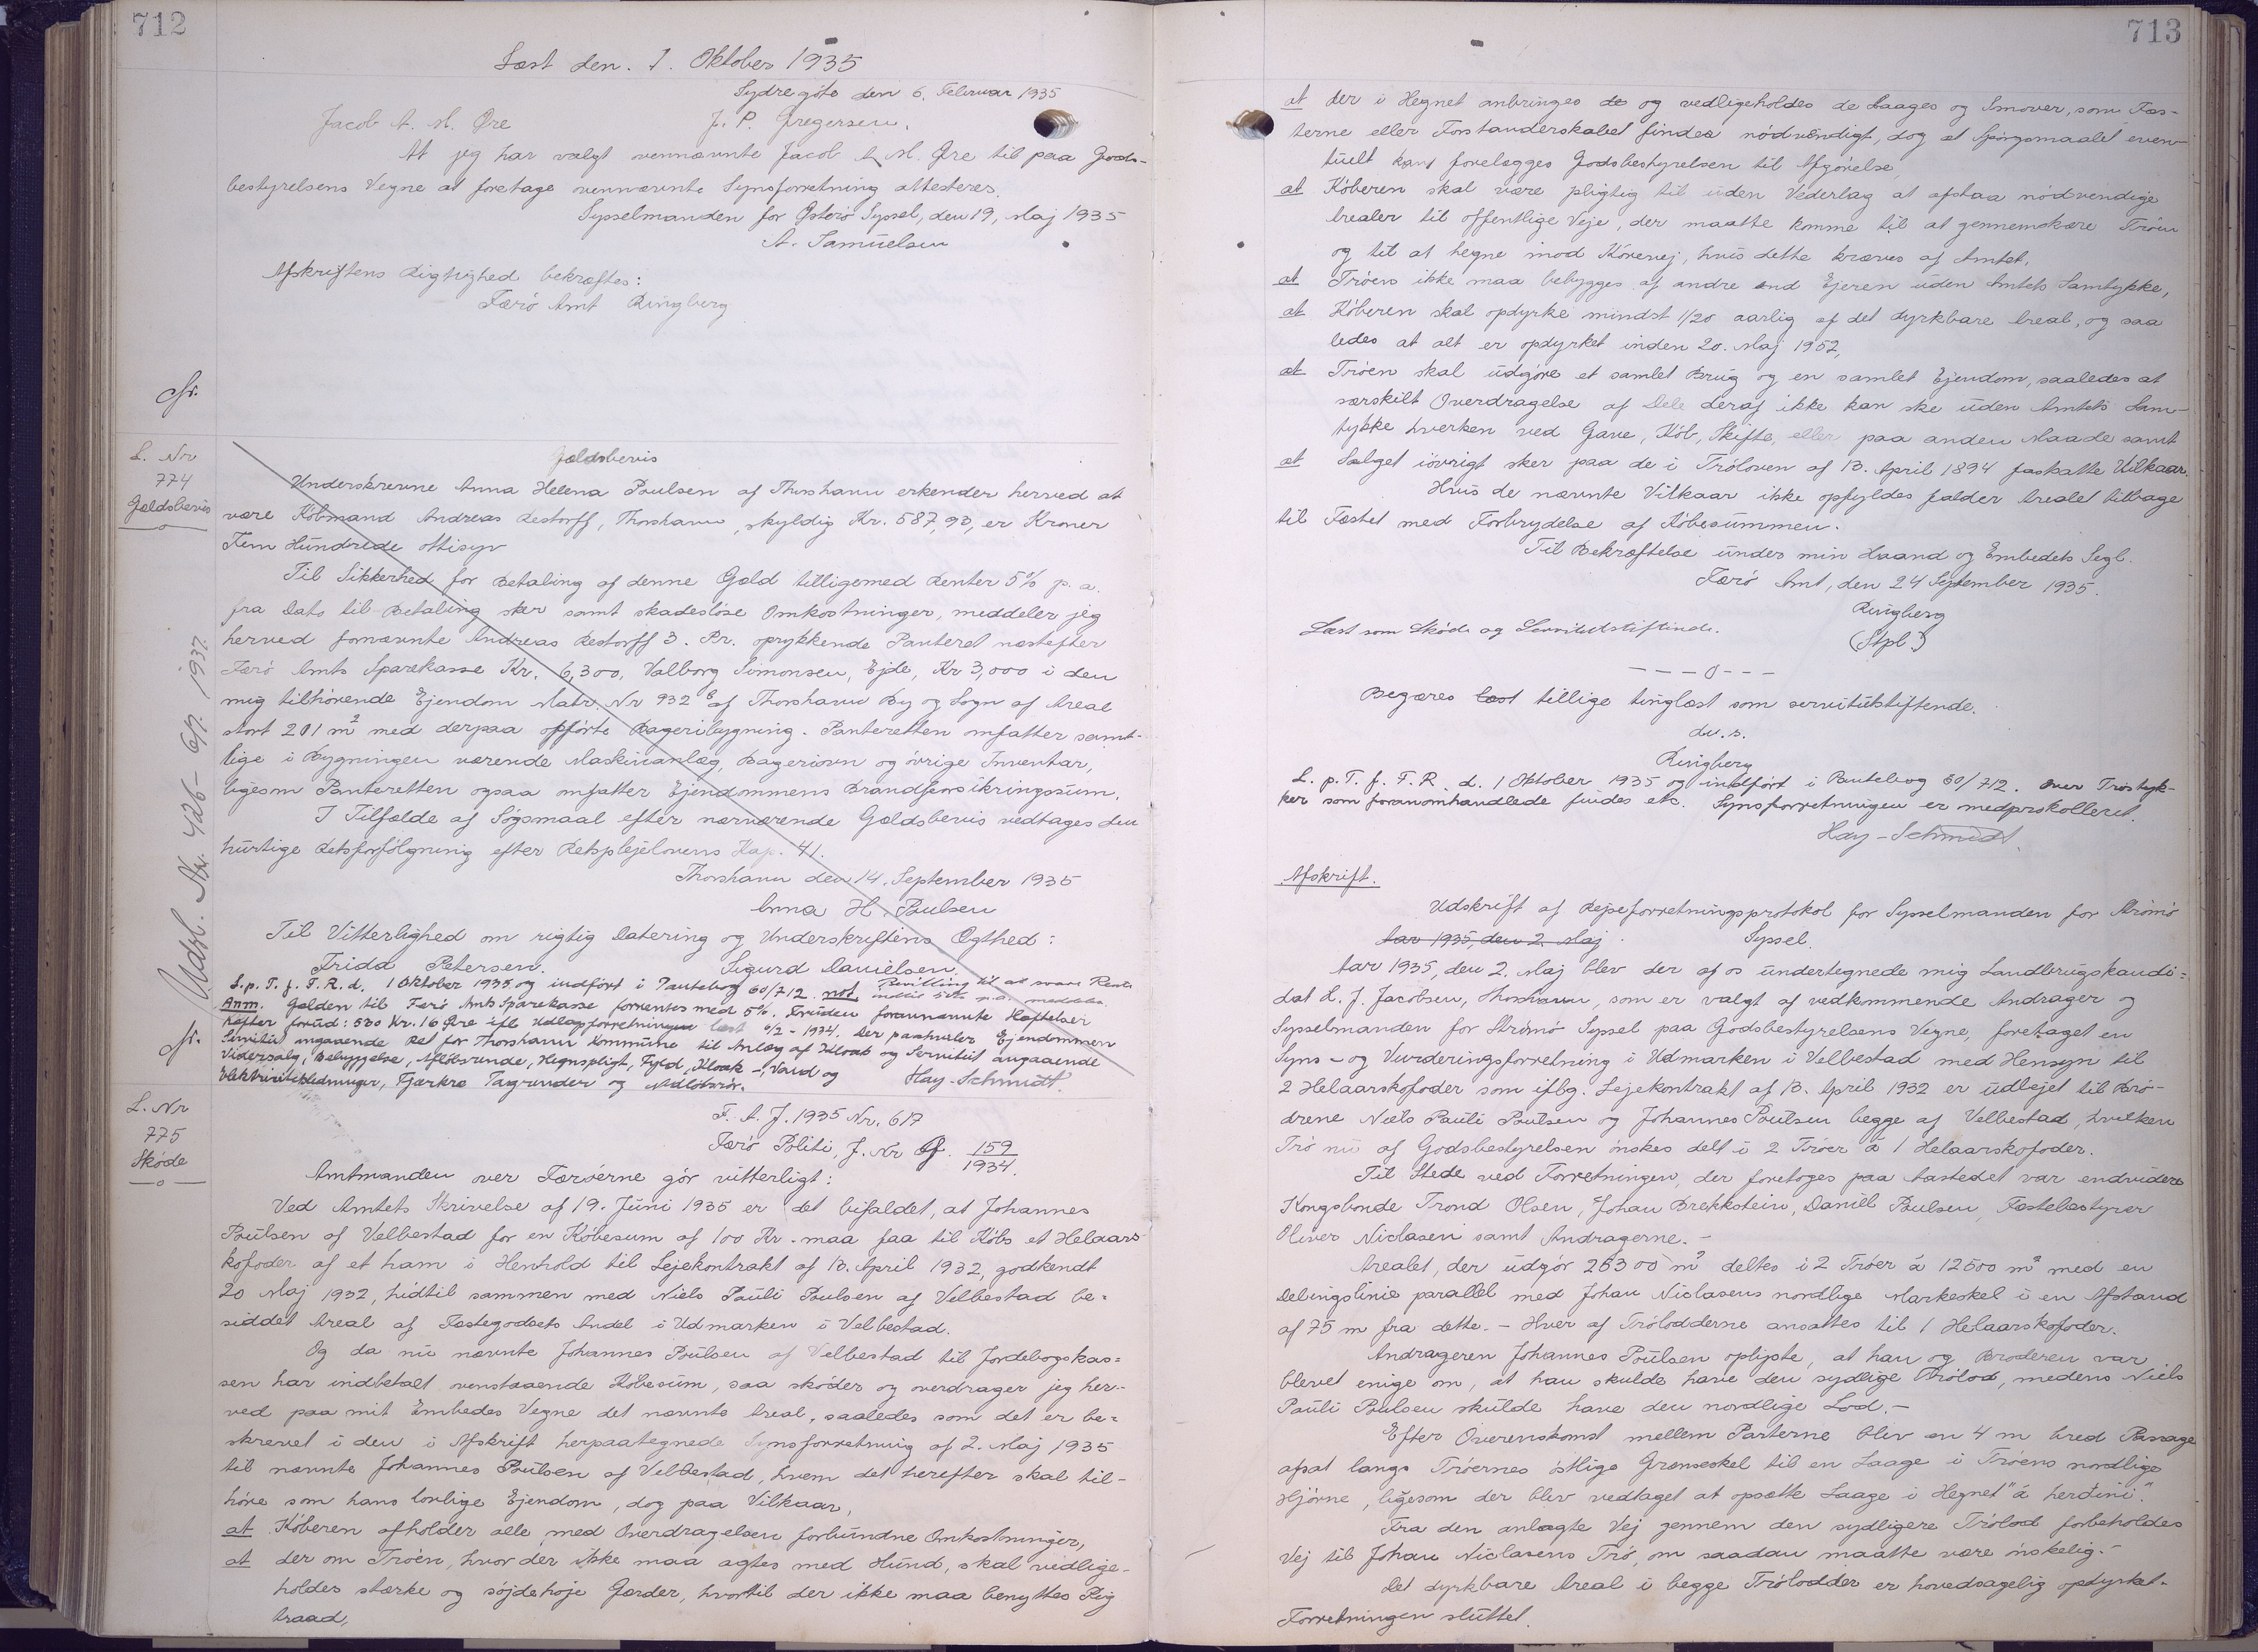 712
Læst den. 1. Oktober 1935
Sydregöte den 6. Februar 1935
Jacob A. M. Øre J. P. Gregersen.
At jeg har valgt ovennævnte Jacob A. M. Øre til paa Gods-
bestyrelsens Vegne at foretage ovennævnte Synsforretning attesteres.
Sysselmanden for Østerö Syssel, den 19. Maj 1935
A. Samuelsen
Afskriftens Rigtighed bekræftes:
Færö Amt Ringberg
L. Nr
774
Gældsbevis
Udsl. Nr. 426 - 6/7. 1937.
Gældsbevis
Underskrevne Anna Helena Poulsen af Thorshavn erkender herved at
være Köbmand Andreas Restorff, Thorshavn, skyldig Kr. 587,90, er Kroner
Fem Hundrede ottisyv
Til Sikkerhed for Betaling af denne Gæld tilligemed Renter 5% p. a.
fra Dato til Betaling sker samt skadeslöse Omkostninger, meddeler jeg
herved fornævnte Andreas Restorff 3. Pr. oprykkende Panteret næstefter
Færö Amts Sparekasse Kr. 6,300, Valborg Simonsen, Ejde, Kr 3,000 i den
mig tilhörende Ejendom Matr. Nr 932 b af Thorshavn By og Sogn af Areal
stort 201 m² med derpaa opförte Bageribygning. Panteretten omfatter samt-
lige i Bygningen værende Maskinanlæg, Bageriovn og övrige Inventar,
ligesom Panteretten ogsaa omfatter Ejendommens Brandforsikringssum.
I Tilfælde af Sögsmaal efter nærværende Gældsbevis vedtages den
hurtige Retsforfölgning efter Retsplejelovens Kap. 41.
Thorshavn den 14. September 1935
Anna H. Poulsen
Til Vitterlighed om rigtig Datering og Underskriftens Ægthed:
Fridd Petersen. Sigurd Danielsen.
L. p. T. f. F. R. d. 1 Oktober 1935 og indfört i Pantebog 60/712. not Bevilling til at svare Rente
indtil 5% p.a. meddeles.
Anm. Gælden til Færö Amts Sparekasse forrentes med 5%. Foruden forannævnte Hæftelser
hæfter forud: 530 Kr. 16 Øre ifl. Udlægsforretningen læst 6/2 - 1934. Der paahviler Ejendommen
Servitut angaaende Ret for Thorshavn Kommune til Anlæg af Kloak og Servitut angaaende
Videresalg, Bebyggelse, Aflöbsrende, Hegnspligt, Fyld, Kloak-, Vand og
Elektricitetsledninger, Fjærkræ Tagrender og Nedlöbsrör. Hay-Schmidt.
L. Nr
775
Sköde
F. A. J. 1935 Nr. 617
Færö Politi, J. Nr G. 159/1934.
Amtmanden over Færöerne gör vitterligt:
Ved Amtets Skrivelse af 19. Juni 1935 er det bifaldet, at Johannes
Poulsen af Velbestad for en Köbesum af 100 Kr. maa faa til Köbs et Helaars
kofoder af et ham i Henhold til Lejekontrakt af 13. April 1932, godkendt
20 Maj 1932, hidtil sammen med Niels Pauli Poulsen af Velbestad be-
siddet Areal af Fæstegodsets Andel i Udmarken i Velbestad.
Og da nu nævnte Johannes Poulsen af Velbestad til Jordebogskas-
sen har indbetalt ovenstaaende Köbesum, saa sköder og overdrager jeg her-
ved paa mit Embedes Vegne det nævnte Areal, saaledes som det er be-
skrevet i den i Afskrift herpaategnede Synsforretning af 2. Maj 1935
til nævnte Johannes Poulsen af Velbestad, hvem det herefter skal til-
höre som hans lovlige Ejendom, dog paa Vilkaar,
at Köberen afholder alle med Overdragelsen forbundne Omkostninger,
at der om Tröen, hvor der ikke maa agtes med Hund, skal vedlige-
holdes stærke og söjdehöje Gærder, hvortil der ikke maa benyttes Pig
traad,
713
at der i Hegnet anbringes de og vedligeholdes de Laager og Smover, som Fæs-
terne eller Forstanderskabet finder nödvendigt, dog at Spörgsmaalet even-
tuelt kan forelægges Godsbestyrelsen til Afgörelse,
at Köberen skal være pligtig til uden Vederlag at afstaa nödvendige
Arealer til offentlige Veje, der maatte komme til at gennemskære Tröen
og til at hegne mod Körevej, hvis dette kræves af Amtet.
at Tröen ikke maa bebygges af andre end Ejeren uden Amtets Samtykke,
at Köberen skal opdyrke mindst 1/20 aarlig af det dyrkbare Areal, og saa
ledes at alt er opdyrket inden 20. Maj 1952,
at Tröen skal udgöre et samlet Brug og en samlet Ejendom, saaledes at
særskilt Overdragelse af Dele deraf ikke kan ske uden Amtets Sam-
tykke hverken ved Gave, Köb, Skifte, eller paa anden Maade samt
at Salget iövrigt sker paa de i Tröloven af 13. April 1894 fastsatte Vilkaar.
Hvis de nævnte Vilkaar ikke opfyldes falder Arealet tilbage
til Fæstet med Forbrydelse af Köbesummen.
Til Bekræftelse under min Haand og Embedets Segl.
Færö Amt, den 24 September 1935.
Ringberg
(Stpl.)
Læst som Sköde og Servitutstiftende.
---o---
Begæres læst tillige tinglæst som servitutstiftende.
d. u. s.
Ringberg
L. p. T. f. F. R. d. 1 Oktober 1935 og indfört i Pantebog 60/712. Over Tröstyk-
ker som foranomhandlede findes etc. Synsforretningen er medprotokolleret.
Hay-Schmidt.
Afskrift.
Udskrift af Rejseforretningsprotokol for Sysselmanden for Strömö
Aar 1935, den 2. Maj Syssel.
Aar 1935, den 2. Maj blev der af os undertegnede mig Landbrugskandi-
dat L. J. Jacobsen, Thorshavn, som er valgt af vedkommende Andrager og
Sysselmanden for Strömö Syssel paa Godsbestyrelsens Vegne, foretaget en
Syns- og Vurderingsforretning i Udmarken i Velbestad med Hensyn til
2 Helaarskofoder som iflg. Lejekontrakt af 13. April 1932 er udlejet til Brö-
drene Niels Pauli Poulsen og Johannes Poulsen begge af Velbestad, hvilken
Trö nu af Godsbestyrelsen önskes delt i 2 Tröer á 1 Helaarskofoder.
Til Stede ved Forretningen, der foretoges paa Aastedet var endvidere
Kongsbonde Trond Olsen, Johan Brekkstein, Daniel Poulsen, Fæstebestyrer
Oliver Niclasen samt Andragerne.-
Arealet, der udgör 26300 m² deltes i 2 Tröer á 12500 m² med en
Delingslinie parallel med Johan Niclasens nordlige Markeskel i en Afstand
af 75 m fra dette. - Hver af Trölodderne ansattes til 1 Helaarskofoder.
Andrageren Johannes Poulsen oplyste, at han og Broderen var
blevet enige om, at han skulde have den sydlige Trölod, medens Niels
Pauli Poulsen skulde have den nordlige Lod.-
Efter Overenskomst mellem Parterne blev en 4 m bred Passage
afsat langs Tröernes östlige Grænseskel til en Laage i Tröens nordlige
Hjörne, ligesom der blev vedtaget at opsætte Laage i Hegnet "á herđini".
Fra den anlagte Vej gennem den sydligere Trölod forbeholdes
Vej til Johan Niclasens Trö, om saadan maatte være önskelig.-
Det dyrkbare Areal i begge Trölodder er hovedsagelig opdyrket.
Forretningen sluttet.